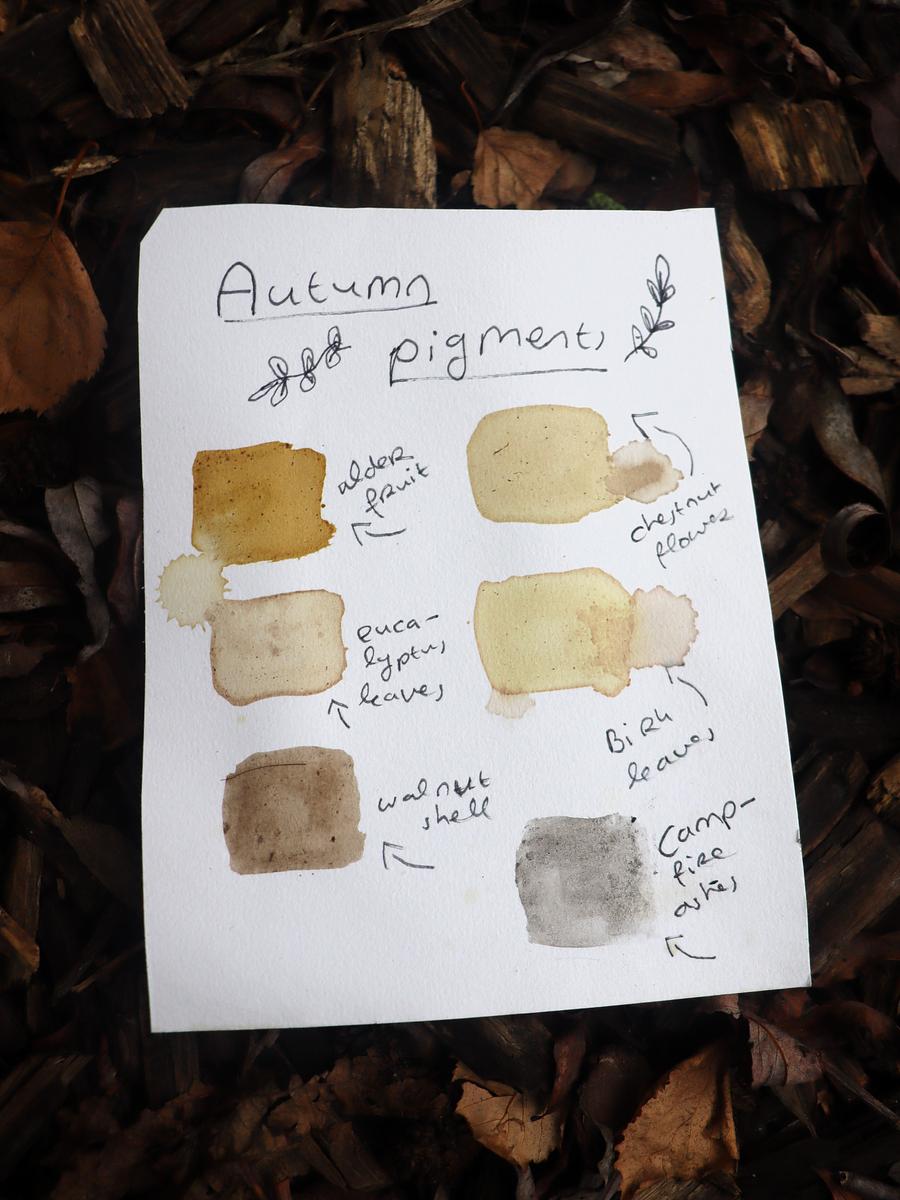 Autumn
pigments
alder
fruit
chestnut
flower
euca-
lyptus
leaves
Birk
leaves
walnut
shell
Camp-
fire
ashes